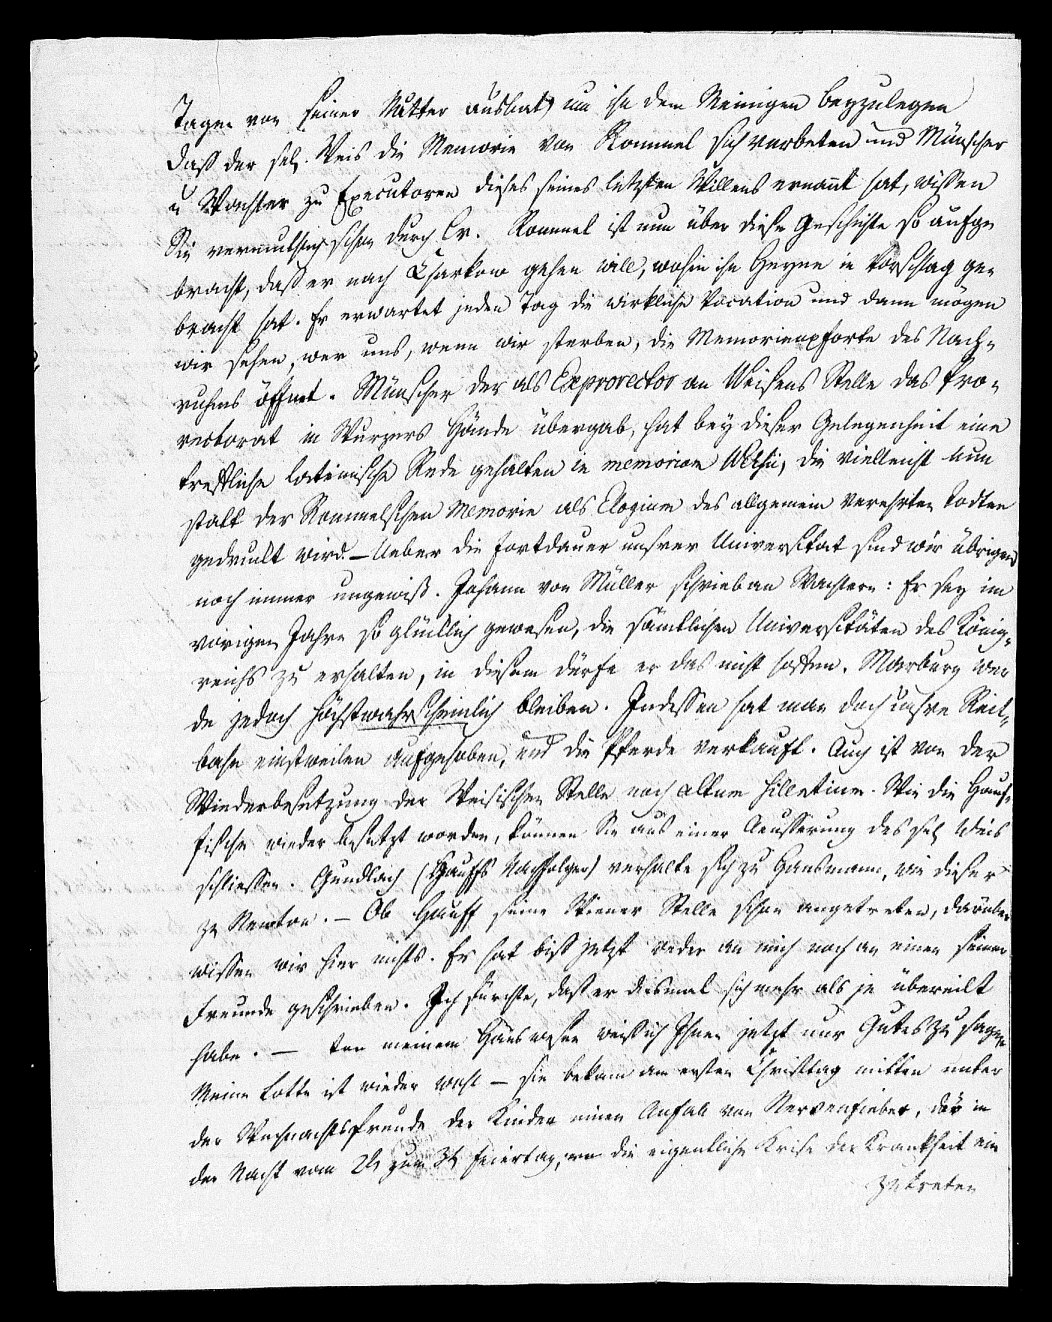 Tagen von seiner Mutter ausbat) um ihn dem Meinigen beyzulegen
Dass der sel. Weis die Memorie von Rommel sich verbeten und Münscher
u Wachler zu Executoren dieses seines letzten Willens ernannt hat, wissen
Sie vermuthlich schon durch Cr. Rommel ist nun über diese Geschichte so aufge
bracht, daß er nach Charkow gehen will, wohin ihn Heyne in Vorschlag ge-
bracht hat. Er erwartet jeden Tag die wirkliche Vocation und dann mögen
wir sehen, wer uns, wenn wir sterben, die Memorienpforte des Nach-
ruhms öffnet. Münscher der als Exprorector an Weisens Stelle das Pro-
rectorat in Wurzers Hände übergab, hat bey dieser Gelegenheit eine
trefliche lateinische Rede gehalten in memoriam Weisii, die vielleicht nun
statt der Rommelschen Memorie als Elogium des allgemein verehrten Todten
gedruckt wird. – Ueber die Fortdauer unsrer Universität sind wir übrigens
noch immer ungewiß. Johann von Müller schrieb an Wachlern: Er sey im
vorigen Jahre so glücklich gewesen, die sämtlichen Universitäten des König-
reichs zu erhalten, in diesem dürfe er das nicht hoffen. Marburg wer
de jedoch höchstwahrscheinlich bleiben. Indessen hat man doch unsre Reit-
bahn einstweilen aufgehoben, und die Pferde verkauft. Auch ist von der
Wiederbesetzung der Weisischen Stelle noch altum silentium. Wie die Hauf-
fische wieder besetzt worden, können Sie aus einer Aeusserung des sel Weis
schliessen. Gundlach (Hauffs Nachfolger) verhalte sich zu Hausmann, wie dieser
zu Newton. – Ob Hauff seine Wiener Stelle schon angetreten, darüber
wissen wir hier nichts. Er hat biß jetzt weder an mich noch an einen seiner
Freunde geschrieben. Ich fürchte, daß er diesmal sich mehr als je übereilt
habe. – Von meinem Hauswesen weiß ich Ihnen jetzt nur Gutes zu sagen.
Meine Lotte ist wieder wohl – sie bekam am ersten Christtag mitten unter
der Weihnachtsfreude der Kinder einen Anfall von Nervenfieber, der in
der Nacht vom 2t zum 3t Feiertag, wo die eigentliche Krise der Krankheit ein
zutreten